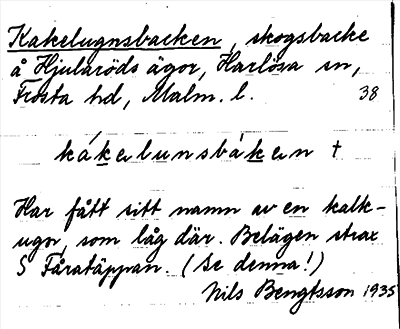 Kakelugnsbacken, skogsbacke
å Hjularöds ägor, Harlösa sn,
Frosta hd, Malm. l. 38
kákelunsbáken †
Har fått sitt namn av en kalk-
ugn, som låg där. Belägen strax
S Fåratäppan. (Se denna!)
Nils Bengtsson 1935